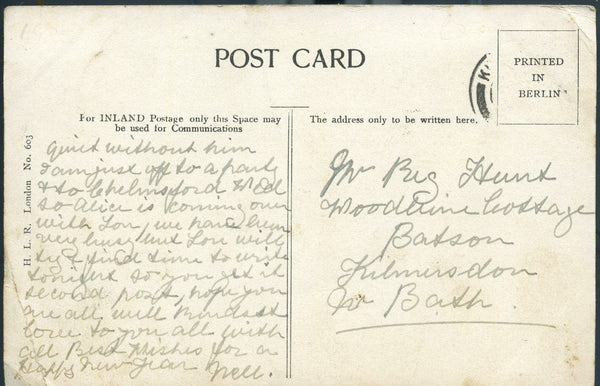 POST CARD
PRINTED
IN
BERLIN
K
For INLAND Postage only this Space may
be used for Communications
The address only to be written here.
H. L. R. London No. 603
quiet without him
I am just off to a party
& to Chelmsford Wed
so Alice is coming over
with Lou, we have been
very busy but Lou will
try & find time to write
tonight so you get it
second post, hope you
are all well Kindest
love to you all with
all Best Wishes for a
Happy New Year Nell.
Mr Reg Hunt
Woodbine Cottage
Batson
Kilmersdon
Nr Bath.